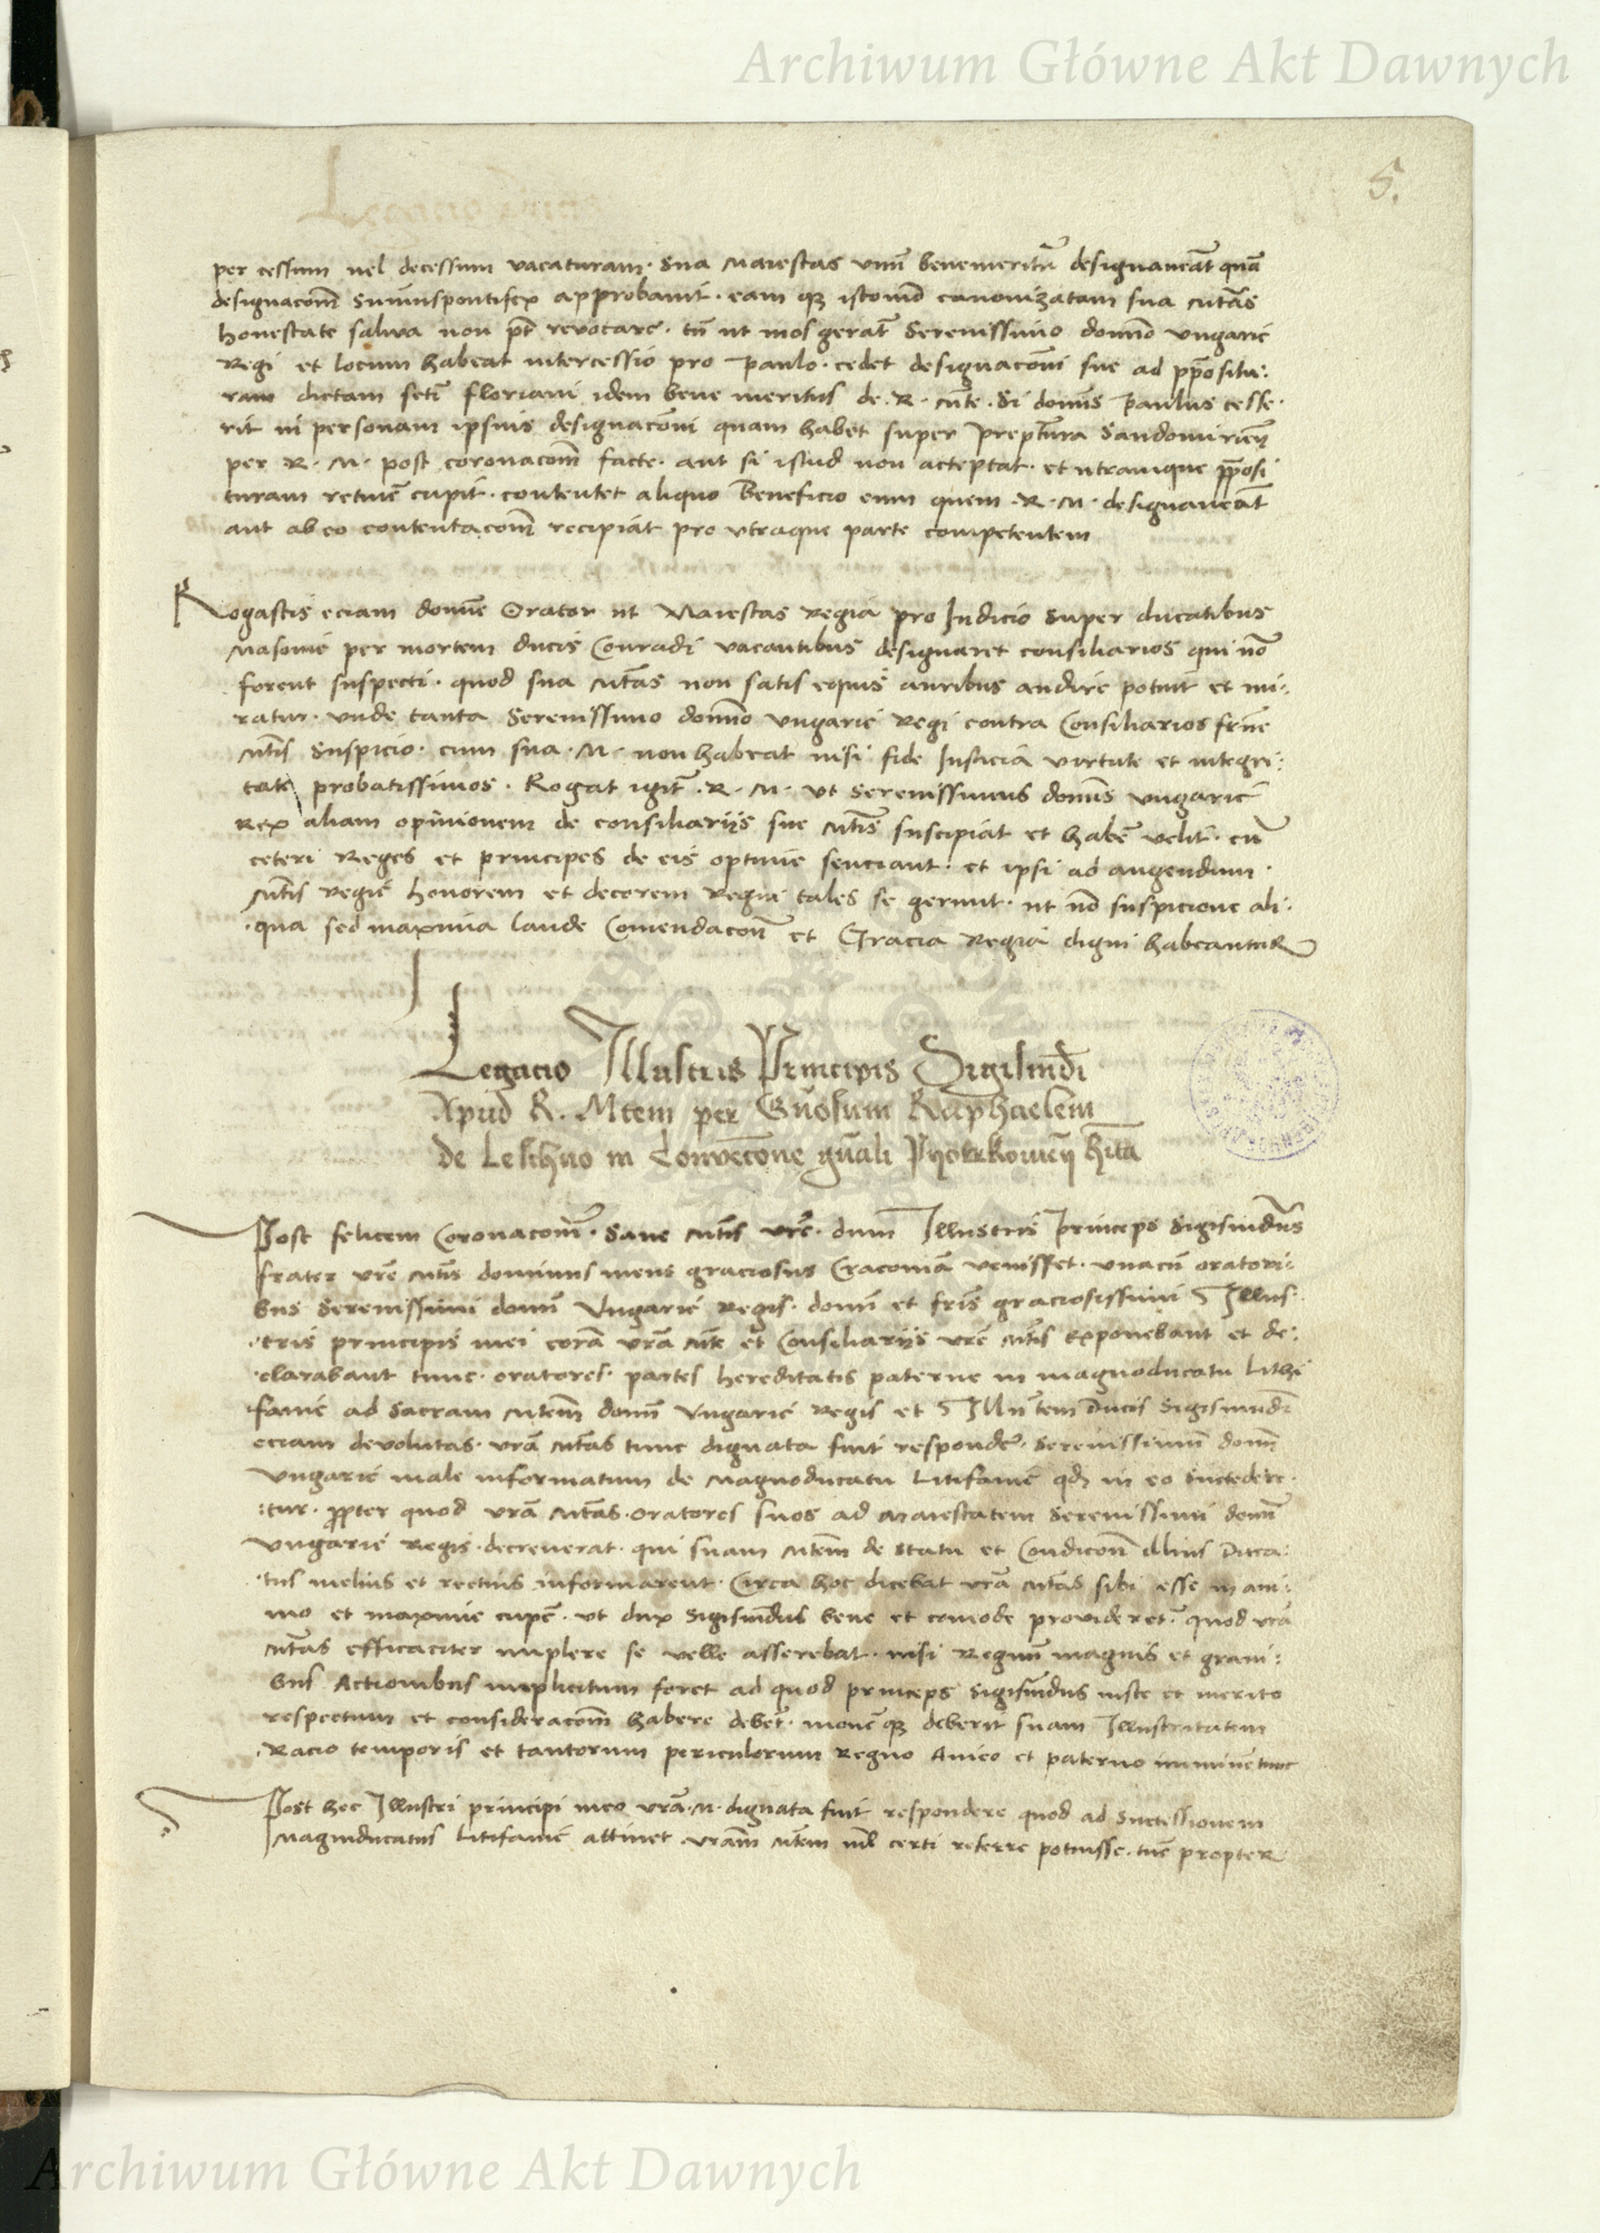 Archiwum Główne Akt Dawnych
5.
per cessum vel decessum vacaturam. Sua Maiestas unū benemeritū designaverat quā
designacōnē Summuspontifex approbavit. eam qz istomō canonizatam sua Mtas
honestate salva non pt revocare. tn ut mos gerat Serenissimo domno Ungarie
Regi et locum habeat intercessio pro Paulo. cedet designacōni sue ad pposítu:
ram dictam scti Floriani idem bene meritus de R. Mte. Si domns Paulus cesse.
rit in personam ipsius designacōni quam habet super Preptura Sandomirien
per R. M. post coronacōm facte. aut si istud non acceptat. et utramque pposi
turam retinē cupit. contentet aliquo Beneficio eum quem R. M. designaverat
aut ab eo contentacōm recipiat pro utraque parte competentem
Rogastis eciam domne Orator ut Maiestas Regia pro Iudicio super ducatibus
Masovie per mortem ducis Conradi vacantibus designaret consiliarios qui nō
forent suspecti. quod sua Mtas non satis equis auribus audire potuit et mi:
ratur. unde tanta Serenissimo domno Ungarie Regi contra Consiliarios frne
Mtis suspicio. cum sua. M. non habeat nisi fide Iusticia virtute et integri:
tate probatissimos. Rogat igitr. R. M. ut Serenissimus domns Ungarie
Rex aliam opinionem de consiliariis sue Mtis suscipiat et habē velit. cū
ceteri Reges et principes de eis optime senciant. et ipsi ad augendum.
Mtis Regie honorem et decorem Regni tales se gerunt. ut nō suspicione ali.
.qua sed maxima laude Comendacōne et Gracia Regia digni habeantur
Legacio Illustris Principis Sigismūdi
Apud R. Mtem per Gnōsum Raphaelem
de Leschno in Convēcōne gnāli Pyotrkowien hita
Post felicem Coronacōm. Sane Mtis vre. dum Illustris Princeps Sigismūdus
frater vre Mtis dominus meus graciosus Cracoviā venisset. unacū oratori:
bus Serenissimi domni Ungarie Regis. domni et fris graciosissimi Illus.
.tris principis mei corā vra Mte et Consiliariis vre Mtis exponebant et de:
.clarabant tunc. oratores. partes hereditatis paterne in magnoducatu Lithi
fanie ad Sacram Mtem domni Ungarie Regis et Illustem Ducis Sigismundi
eciam devolutas. vra Mtas tunc dignata fuit respondē. Serenissimū domn
Ungarie male informatum de Magnoducatu Litifanie qd in eo succedere.
:tur. ppter quod vra Mtas. oratores suos ad Maiestatem Serenissimi domni
Ungarie Regis. decreverat. qui suam Mtem de statu et Condicōne illius Duca:
.tus melius et rectius informarent. Circa hoc dicebat vra Mtas sibi esse in ani:
mo et maxime cupē. ut dux Sigismūdus bene et comode provideretr. quod vra
Mtas efficaciter implere se velle asserebat. nisi Regnum magnis et gravi:
bus Actionibus implicitum foret ad quod princeps Sigismūdus iuste et merito
respectum et consideracōm habere debet. monē qz deberit suam Illustritatem
.Racio temporis et tantorum periculorum Regno Avico et paterno imminentium
Post hec Illustri principi meo vra. M. dignata fuit respondere quod ad Successionem
Magniducatus Litifanie attinet. vram Mtem nil certi referre potuisse. tūc propter
Archiwum Główne Akt Dawnych